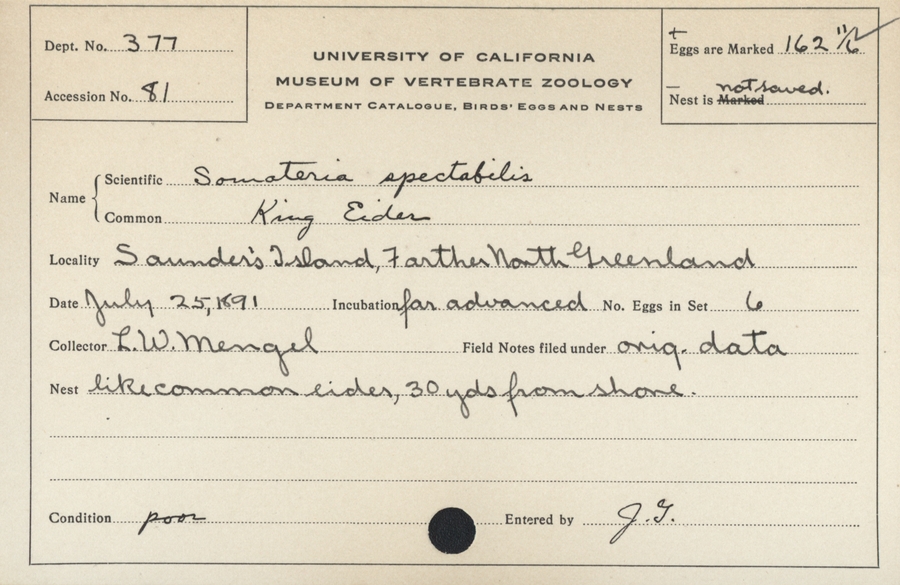 Dept. No. 377
Accession No. 81
UNIVERSITY OF CALIFORNIA
MUSEUM OF VERTEBRATE ZOOLOGY
DEPARTMENT CATALOGUE, BIRDS' EGGS AND NESTS
+
Eggs are Marked 162 11/6
— not saved.
Nest is Marked
Name
Scientific Somateria spectabilis
Common King Eider
Locality Saunder's Island, Farther North Greenland
Date July 25, 1891 Incubation far advanced No. Eggs in Set 6
Collector L.W. Mengel Field Notes filed under orig. data
Nest like common eider, 30 yds from shore.
Condition poor Entered by J.G.